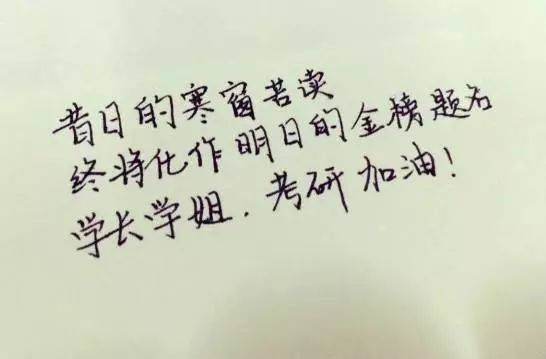 昔日的寒窗苦读
终将化作明日的金榜题名
学长学姐.考研加油!